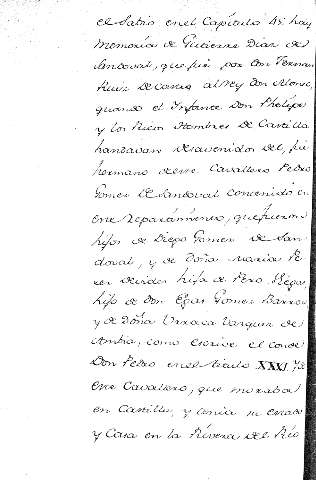 el Sabio en el Capitulo 45 hay
Memoria de Gutierre Diaz de
Sandoval, que fué por Don Fernan
Ruiz de Castro al Rey Don Alonso,
quando el Infante Don Phelipe
y los Ricos Hombres de Castilla
handavan desavenidos del, fué
hermano de este Cavallero Pedro
Gomez de Sandoval contenido en
este Reparamiento, que fueron
hijos de Diego Gomez de San-
doval, y de Doña Maria Pe-
rez hija de Pero
hijo de Don Egas Gomez Barroso
y de Doña Urraca Vazquez de
Ambia, como escrive el conde
Don Pedro en el titulo XXXI. Y de
este Cavallero, que moraba
en Castilla, y tenia su estado
y Casa en la Rivera del Rio